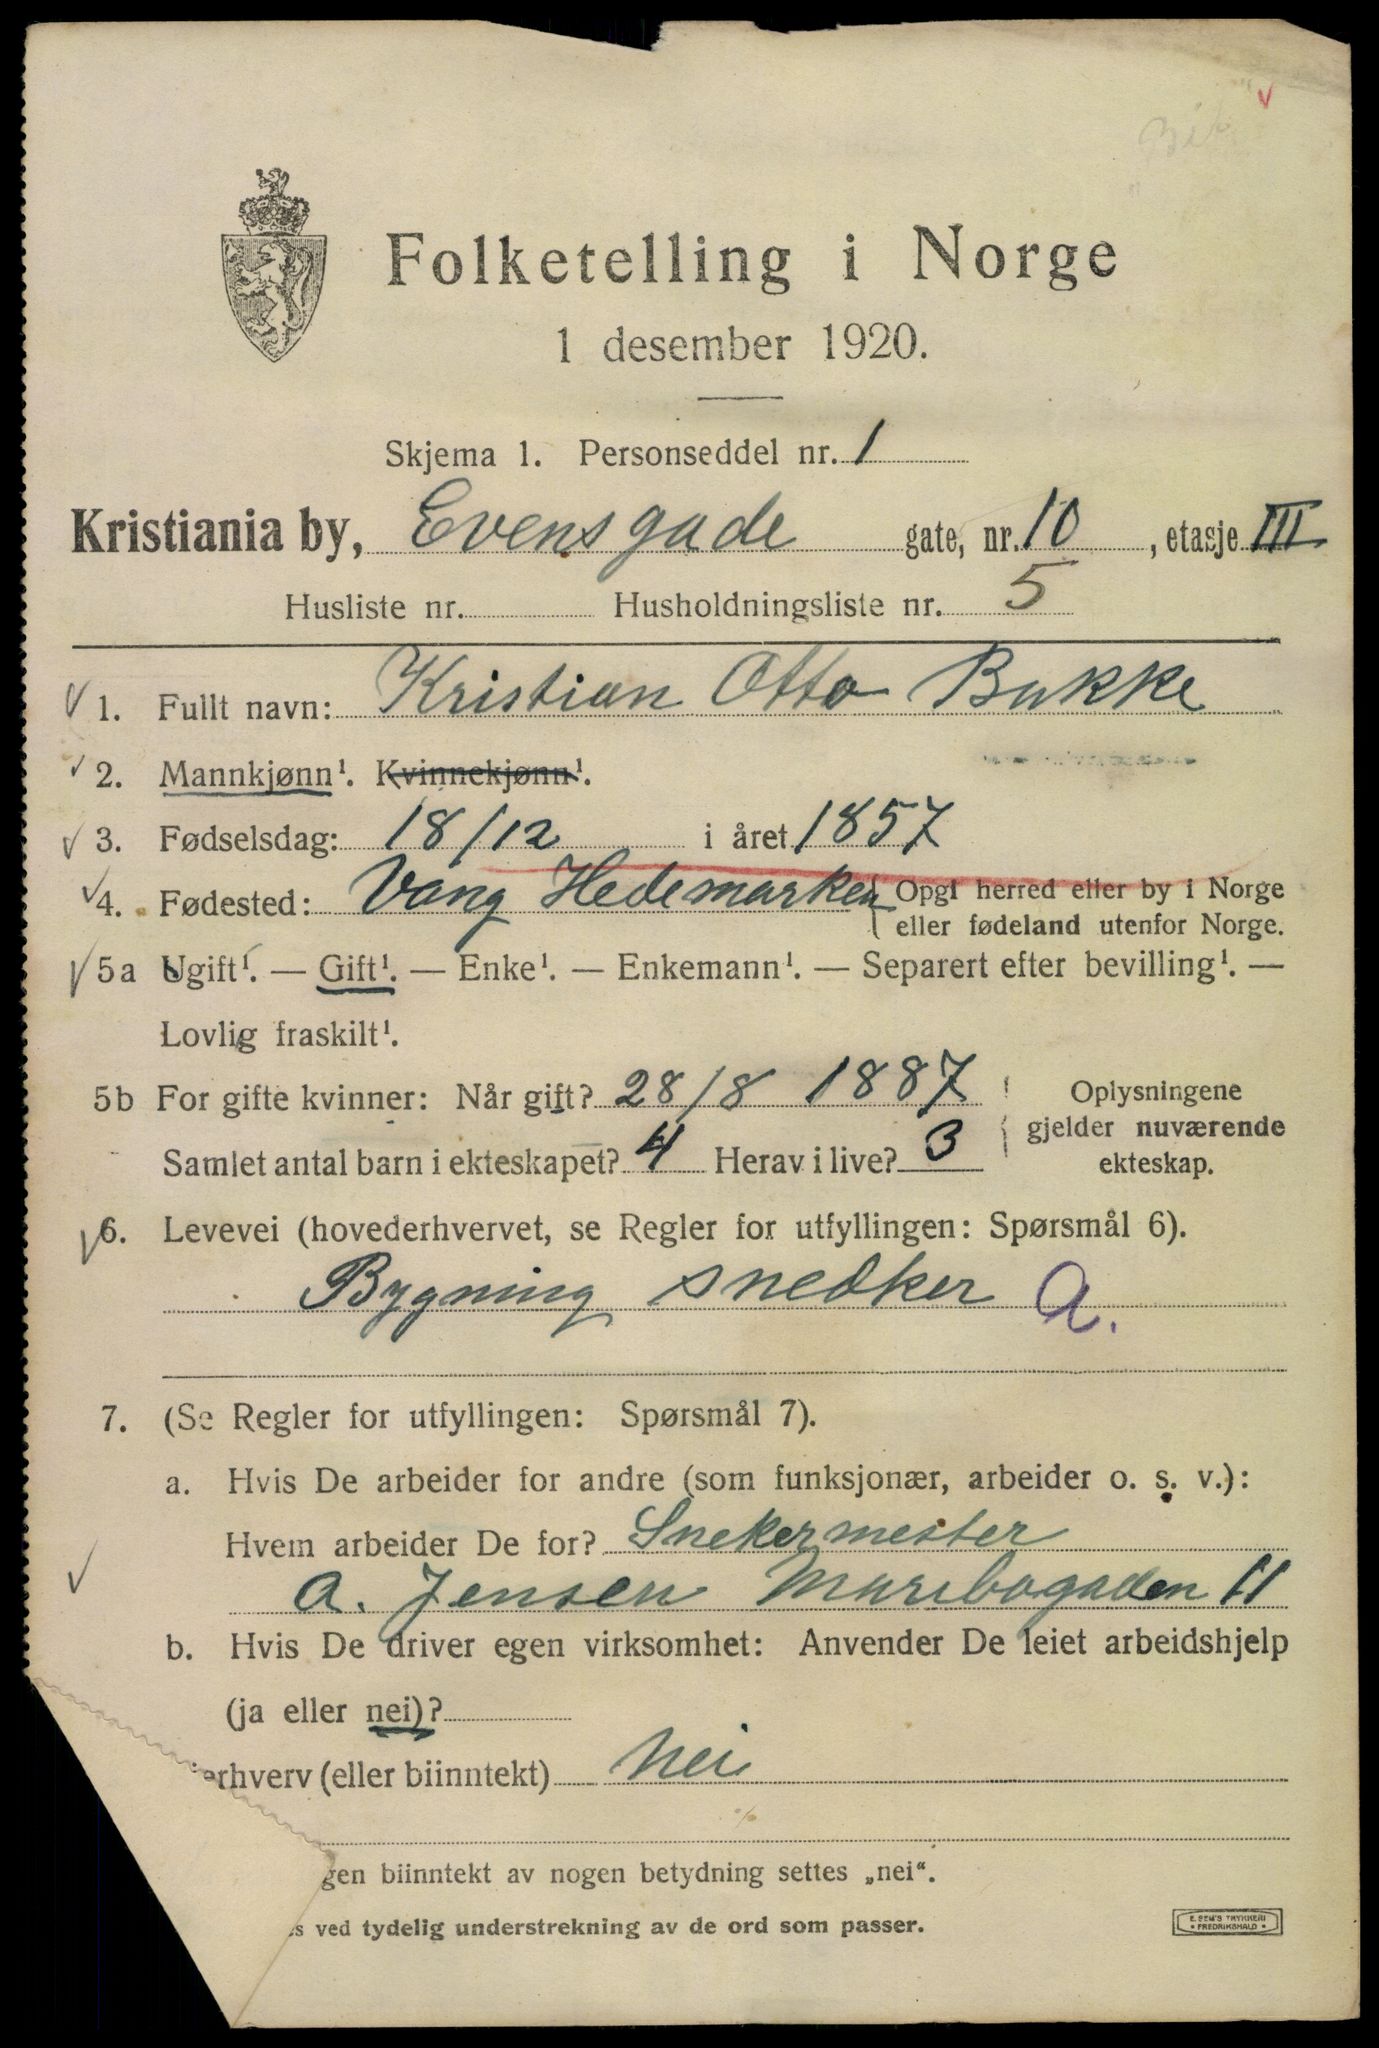 Folketelling i Norge
1 desember 1920.
Skjema 1. Personseddel nr. 1
Kristiania by, Evensgade gate, nr. 10, etasje III
Husliste nr. Husholdningsliste nr. 5
1. Fullt navn: Kristian Otto Bakke
2. Mannkjønn¹. Kvinnekjønn¹.
3. Fødselsdag: 18/12 i året 1857
4. Fødested: Vang Hedemarken { Opgi herred eller by i Norge
eller fødeland utenfor Norge.
5a Ugift¹. — Gift¹. — Enke¹. — Enkemann¹. — Separert efter bevilling¹. —
Lovlig fraskilt¹.
5b For gifte kvinner: Når gift? 28/8 1887 { Oplysningene
gjelder nuværende
Samlet antal barn i ekteskapet? 4 Herav i live? 3 ekteskap.
6. Levevei (hovederhvervet, se Regler for utfyllingen: Spørsmål 6).
Bygning snedker A.
7. (Se Regler for utfyllingen: Spørsmål 7).
a. Hvis De arbeider for andre (som funksjonær, arbeider o. s. v.):
Hvem arbeider De for? Snekermester
A. Jensen Maribogaden 11
b. Hvis De driver egen virksomhet: Anvender De leiet arbeidshjelp
(ja eller nei)?
ierhverv (eller biinntekt) Nei
gen biinntekt av nogen betydning settes „nei“.
s ved tydelig understrekning av de ord som passer.
E. SEM'S TRYKKERI
• FREDRIKSHALD •